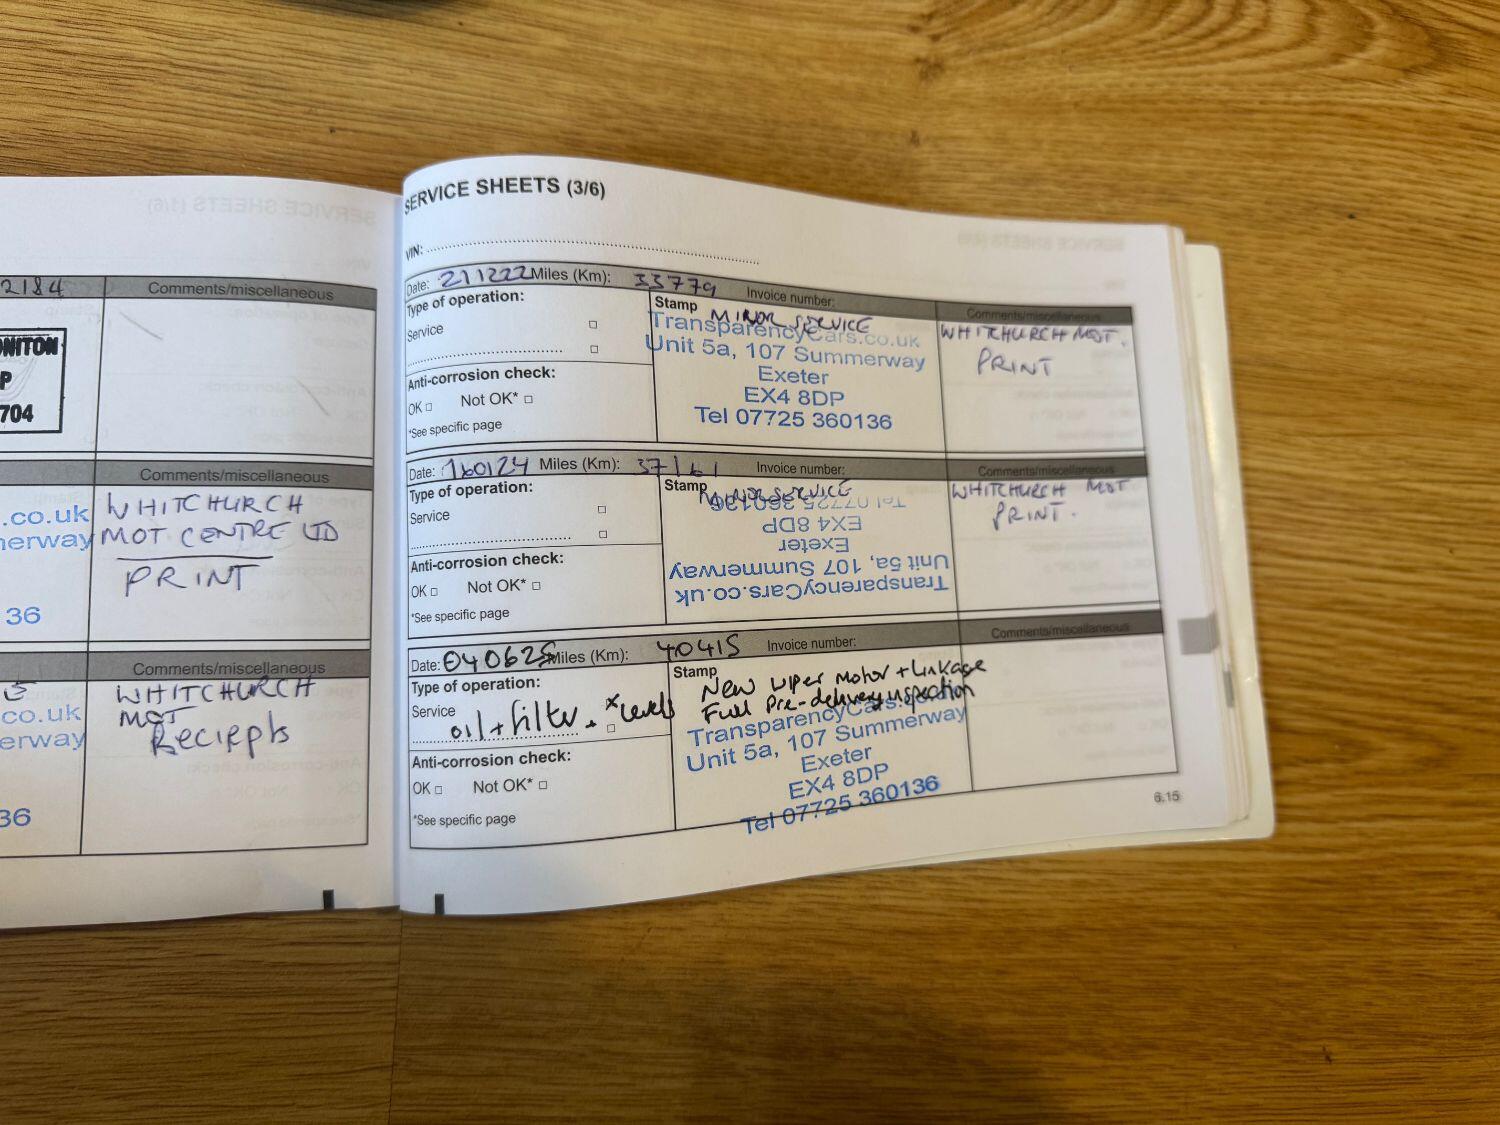 2184
Comments/miscellaneous
ONITON
P
704
Comments/miscellaneous
.co.uk
merway
36
WHITCHURCH
MOT CENTRE LTD
PRINT
Comments/miscellaneous
co.uk
erway
36
WHITCHURCH
MOT
Reciepts
SERVICE SHEETS (3/6)
VIN:
Date: 211222 Miles (Km): 33779 Invoice number:
Type of operation:
Service
Anti-corrosion check:
OK Not OK*
*See specific page
Stamp MINOR SERVICE
TransparencyCars.co.uk
Unit 5a, 107 Summerway
Exeter
EX4 8DP
Tel 07725 360136
Comments/miscellaneous
WHITCHURCH MOT.
PRINT
Date: 160124 Miles (Km): 37161 Invoice number:
Type of operation:
Service
Anti-corrosion check:
OK Not OK*
*See specific page
Stamp
MINOR SERVICE
TransparencyCars.co.uk
Unit 5a, 107 Summerway
Exeter
EX4 8DP
Tel 07725 360136
Comments/miscellaneous
WHITCHURCH MOT
PRINT.
Date: 040625 Miles (Km): 40415 Invoice number:
Type of operation:
Service
oil + filter + levels
Anti-corrosion check:
OK Not OK*
*See specific page
Stamp
New wiper motor + linkage
Full Pre-delivery inspection
TransparencyCars.co.uk
Unit 5a, 107 Summerway
Exeter
EX4 8DP
Tel 07725 360136
Comments/miscellaneous
6.15